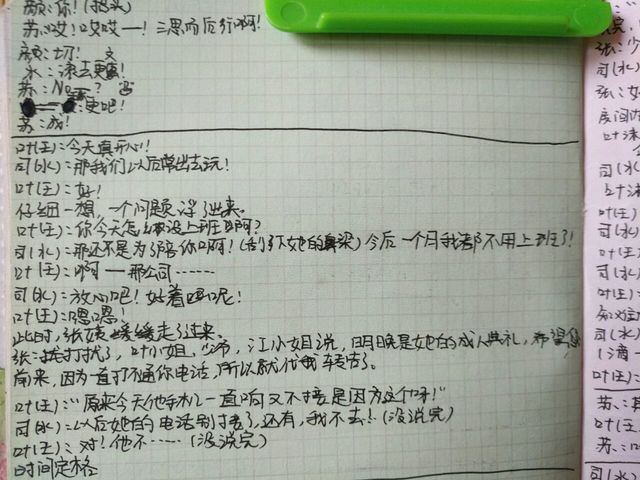 颜：你！(抬头)
苏：哎！哎哎—！三思而后行啊！
颜：切！
水：沫去更
苏：No ？
更吧！
苏：成！
叶(王)：今天真开心！
司(水)：那我们以后常出去玩！
叶(王)：好！
仔细一想，一个问题浮了出来。
叶(王)：你今天怎么没上班啊？
司(水)：那还不是为了陪你啊！(刮了下她的鼻梁)今后一个月我都不用上班了！
叶(王)：啊—那公司……
司(水)：放心吧！好着呢！
叶(王)：嗯嗯！
此时，张姨缓缓走了过来。
张：打扰了，叶小姐，少爷，江小姐说，明晚是她的成人典礼，希望您
前来，因为一直打不通你电话，所以就代我转告了。
叶(王)："原来今天他手机一直响又不接是因为这个呀！"
司(水)：以后她的电话别接了，还有，我不去！(没说完)
叶(王)：对！他不……(没说完)
时间定格
张：少
司(水)
张：好
房间内
叶：沫
司(水)
叶(王)
司(水)
叶(王)
司(水)
叶(王)
司(水)
叶(王)：
苏：
叶(王)
苏：
司(水)